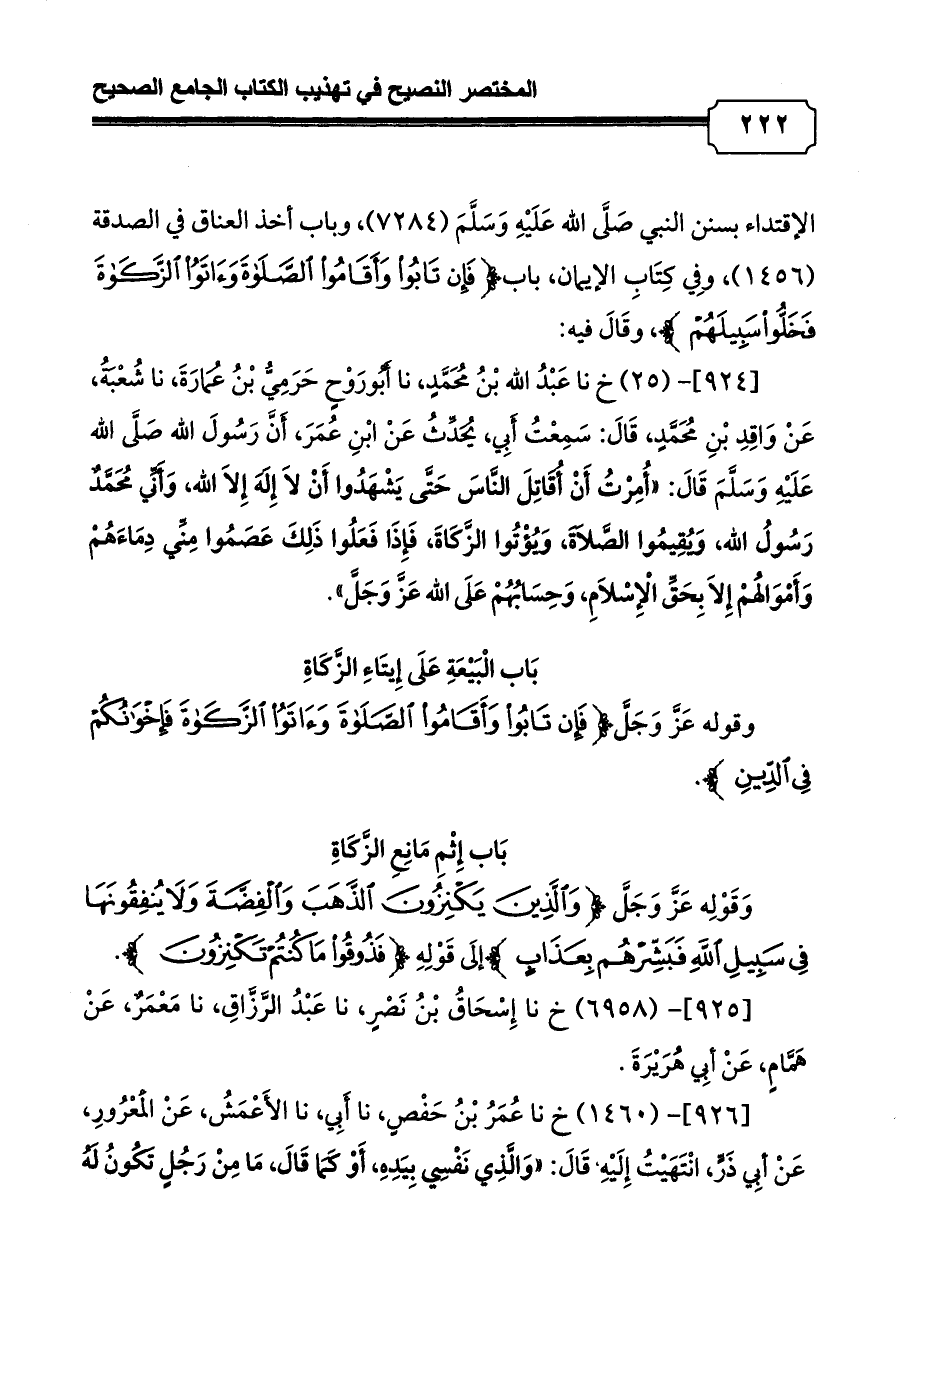 المختصر النصيح في تهذيب الكتاب الجامع الصحيح
٢٢٢
الإقتداء بسنن النبي صَلَّى الله عَلَيْهِ وَسَلَّمَ (٧٢٨٤)، وباب أخذ العناق في الصدقة
(١٤٥٦)، وفي كِتَابِ الإيمان، باب ﴿ فَإِن تَابُوا۟ وَأَقَامُوا۟ ٱلصَّلَوٰةَ وَءَاتَوُا۟ ٱلزَّكَوٰةَ
فَخَلُّوا۟ سَبِيلَهُمْ ﴾، وقَالَ فيه:
[٩٢٤]- (٢٥) خ نا عَبْدُ الله بْنُ مُحَمَّدٍ، نا أَبُورَوْحٍ حَرَمِيُّ بْنُ عُمَارَةَ، نا شُعْبَةُ،
عَنْ وَاقِدِ بْنِ مُحَمَّدٍ، قَالَ: سَمِعْتُ أَبِي، يُحَدِّثُ عَنْ ابْنِ عُمَرَ، أَنَّ رَسُولَ الله صَلَّى الله
عَلَيْهِ وَسَلَّمَ قَالَ: «أُمِرْتُ أَنْ أُقَاتِلَ النَّاسَ حَتَّى يَشْهَدُوا أَنْ لاَ إِلَهَ إِلاَ الله، وَأَنِّي مُحَمَّدٌ
رَسُولُ الله، وَيُقِيمُوا الصَّلاَةَ، وَيُؤْتُوا الزَّكَاةَ، فَإِذَا فَعَلُوا ذَلِكَ عَصَمُوا مِنِّي دِمَاءَهُمْ
وَأَمْوَالَهُمْ إِلاَ بِحَقِّ الْإِسْلاَمِ، وَحِسَابُهُمْ عَلَى الله عَزَّ وَجَلَّ».
بَاب الْبَيْعَةِ عَلَى إِيتَاءِ الزَّكَاةِ
وقوله عَزَّ وَجَلَّ ﴿ فَإِن تَابُوا۟ وَأَقَامُوا۟ ٱلصَّلَوٰةَ وَءَاتَوُا۟ ٱلزَّكَوٰةَ فَإِخْوَٰنُكُمْ
فِى ٱلدِّينِ ﴾.
بَاب إِثْمِ مَانِعِ الزَّكَاةِ
وَقَوْلِه عَزَّ وَجَلَّ ﴿ وَٱلَّذِينَ يَكْنِزُونَ ٱلذَّهَبَ وَٱلْفِضَّةَ وَلَا يُنفِقُونَهَا
فِى سَبِيلِ ٱللَّهِ فَبَشِّرْهُم بِعَذَابٍ ﴾ إِلَى قَوْلِهِ ﴿ فَذُوقُوا۟ مَا كُنتُمْ تَكْنِزُونَ ﴾.
[٩٢٥]- (٦٩٥٨) خ نا إِسْحَاقُ بْنُ نَصْرٍ، نا عَبْدُ الرَّزَّاقِ، نا مَعْمَرٌ، عَنْ
هَمَّامٍ، عَنْ أبِي هُرَيْرَةَ.
[٩٢٦]- (١٤٦٠) خ نا عُمَرُ بْنُ حَفْصٍ، نا أَبِي، نا الأَعْمَشُ، عَنْ الْمَعْرُورِ،
عَنْ أبِي ذَرٍّ، انْتَهَيْتُ إِلَيْهِ قَالَ: «وَالَّذِي نَفْسِي بِيَدِهِ، أَوْ كَمَا قَالَ، مَا مِنْ رَجُلٍ تَكُونُ لَهُ